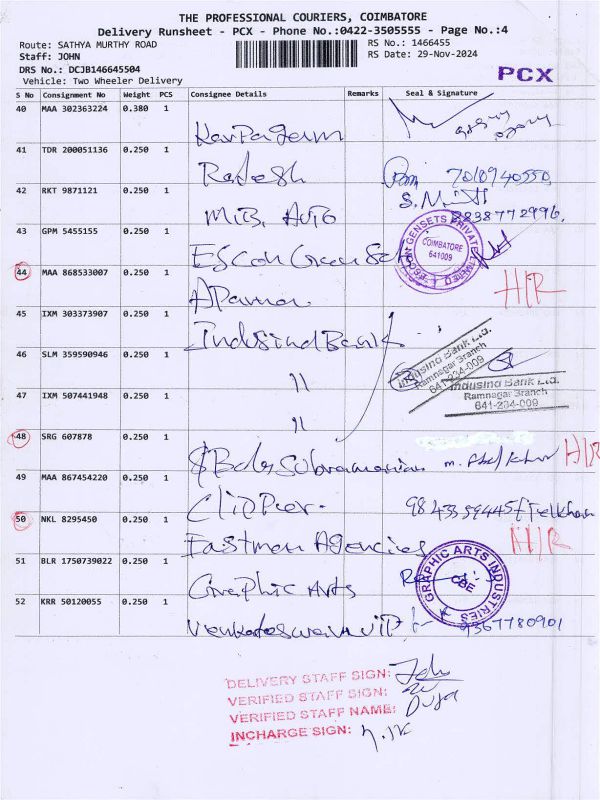 THE PROFESSIONAL COURIERS, COIMBATORE
Delivery Runsheet - PCX - Phone No.:0422-3505555 - Page No.:4
Route: SATHYA MURTHY ROAD
RS No.: 1466455
Staff: JOHN
RS Date: 29-Nov-2024
DRS No.: DCJB146645504
PCX
Vehicle: Two Wheeler Delivery
S No Consignment No Weight PCS Consignee Details Remarks Seal & Signature
40 MAA 302363224 0.380 1
41 TDR 200051136 0.250 1
Radesh
42 RKT 9871121 0.250 1
MIB. AUTO
43 GPM 5455155 1
COIMBATORE
641009
ESGON GENSETS PRIVATE LIMITED
44 MAA 868533007 0.250 1
H/R
45 IXM 303373907 0.250 1
IndusindBank
46 SLM 359590946 0.250 1
"
Indusind Bank Ltd.
Ramnagar Branch
641-234-009
Indusind Bank Ltd.
Ramnagar Branch
641-234-009
47 IXM 507441948 0.250 1
"
48 SRG 607878 0.250 1
H/R
49 MAA 867454220 0.250 1
50 NKL 8295450 0.250 1
Fastman Agencies
H/R
51 BLR 1750739022 0.250 1
Graphic Arts
GRAPHIC ARTS INDUSTRIES
CBE
52 KRR 50120055 0.250 1
9367780901
DELIVERY STAFF SIGN: John
VERIFIED STAFF SIGN:
VERIFIED STAFF NAME:
INCHARGE SIGN: